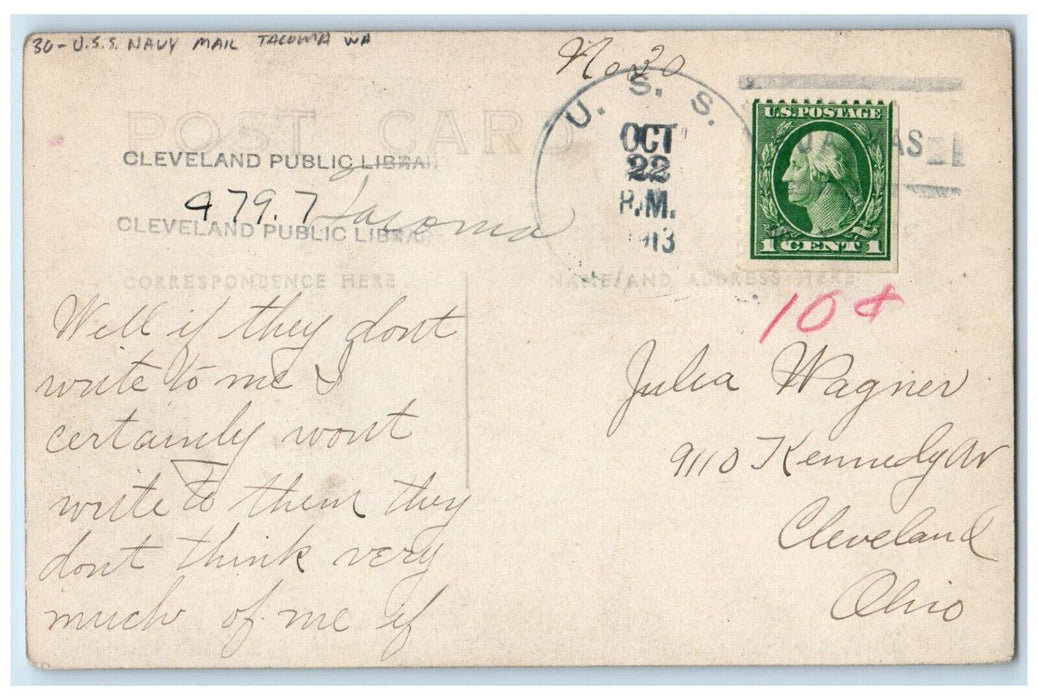 30 - U.S.S. NAVY MAIL TACOMA WA
No 20
POST CARD
U. S. S.
OCT
22
P.M.
1913
U.S. POSTAGE
1 CENT 1
CLEVELAND PUBLIC LIBRAR
979.7 Tacoma
CLEVELAND PUBLIC LIBRAR
CORRESPONDENCE HERE
NAME AND ADDRESS HERE
10¢
Well if they dont
write to me I
certainly wont
write to them they
dont think very
much of me if
Julia Wagner
9110 Kennedy Av
Cleveland
Ohio